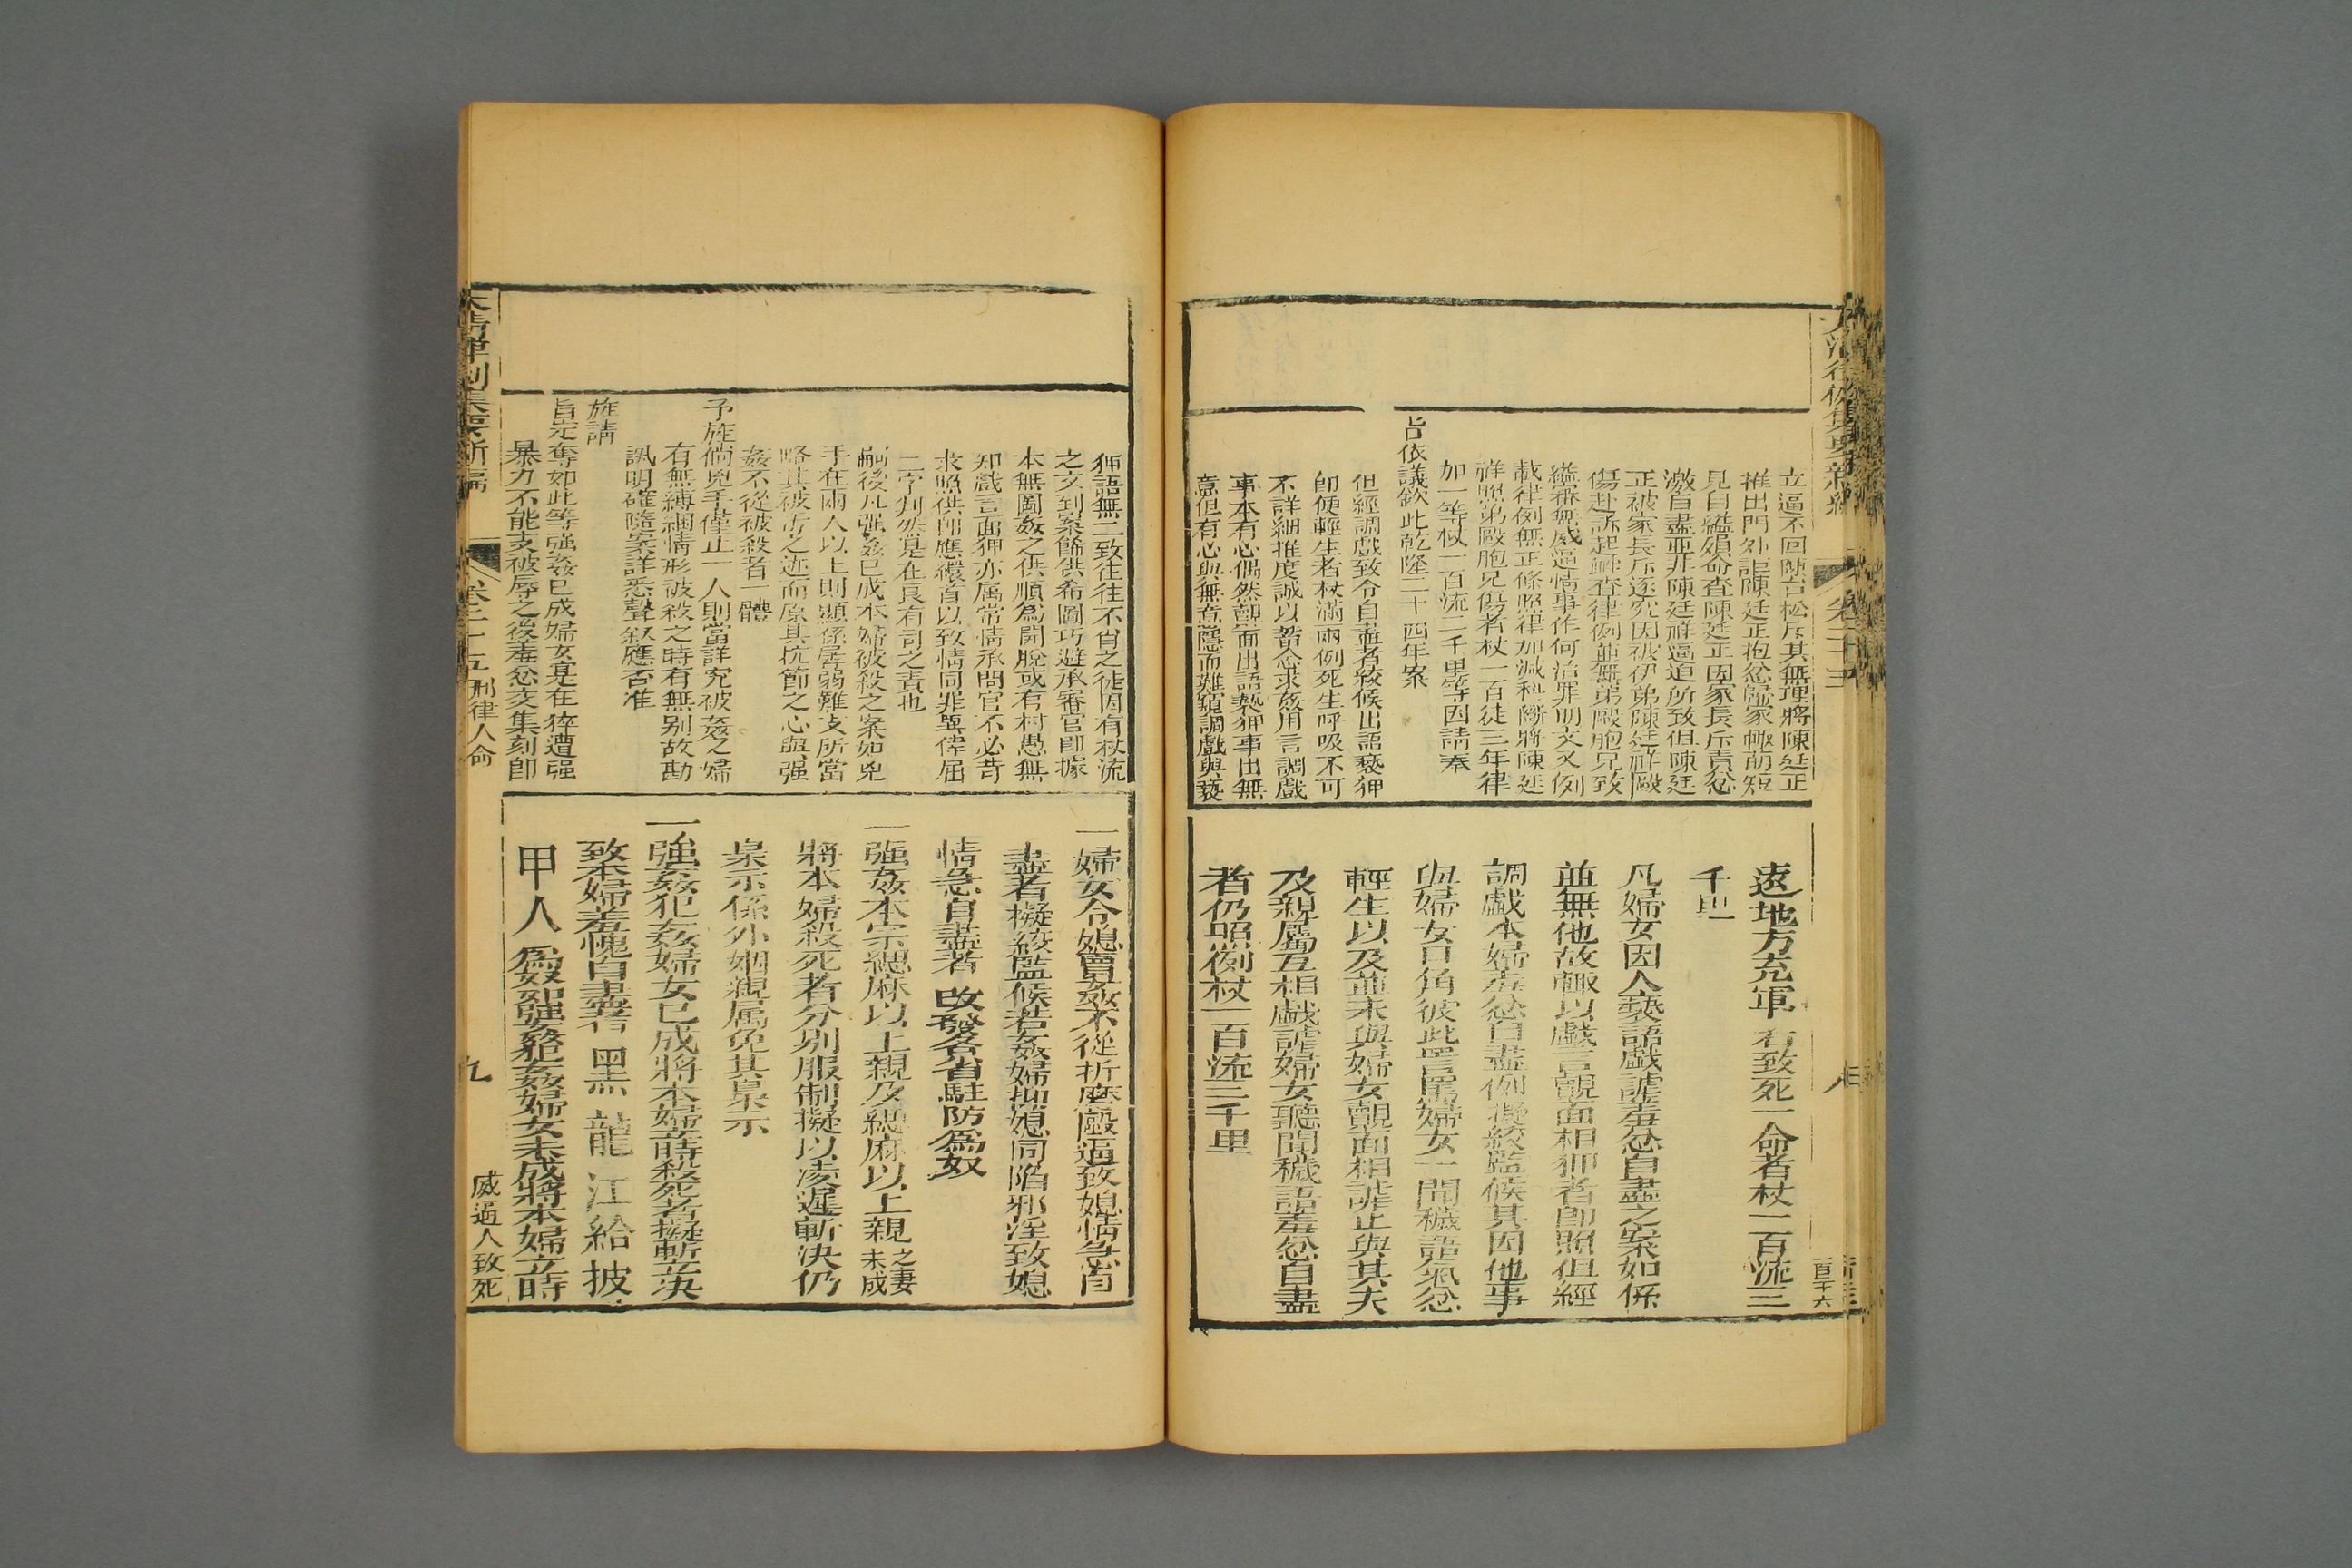 大清律例集要新編
卷二十五
立逼不回陳台松斥其無理將陳廷正
推出門外詎陳廷正抱忿歸家輒萌短
見自縊殞命查陳廷正因家長斥責忿
激自盡並非陳廷祥逼迫所致但陳廷
正被家長斥逐究因被伊弟陳廷祥毆
傷赴訴起衅查律例並無弟毆胞兄致
縊審無威逼情事作何治罪明文又例
載律例無正條照律加減科斷將陳廷
祥照弟毆胞兄傷者杖一百徒三年律
加一等杖一百流二千里等因請奉
旨依議欽此乾隆二十四年案
但經調戲致令自盡者絞候出語褻狎
卽便輕生者杖滿兩例死生呼吸不可
不詳細推度誠以蓄念求姦用言調戲
事本有心偶然覿面出語褻狎事出無
意但有心與無意隱而難窺調戲與褻
遠地方充軍若致死一命者杖一百流三
千里
凡婦女因人褻語戲謔羞忿自盡之案如係
並無他故輒以戲言覿面相狎者卽照但經
調戲本婦羞忿自盡例擬絞監候其因他事
與婦女口角彼此詈罵婦女一聞穢語氣忿
輕生以及並未與婦女覿面相謔止與其夫
及親屬互相戲謔婦女聽聞穢語羞忿自盡
者仍照例杖一百流三千里
狎語無二致往往不肖之徒因有杖流
之文到案餙供希圖巧避承審官卽據
本無圖姦之供順爲開脫或有村愚無
知戲言面狎亦属常情承問官不必苛
求照供卽應繯首以致情同罪異倖屈
二字判然是在良有司之責也
嗣後凡强姦已成本婦被殺之案如兇
手在兩人以上則顯係孱弱難支所當
略其被汚之迹而原其抗節之心與强
姦不從被殺者一體
予旌倘兇手僅止一人則當詳究被姦之婦
有無縛綑情形被殺之時有無別故勘
訊明確隨案詳悉聲叙應否准
旌請
旨定奪如此等强姦已成婦女寔在猝遭强
暴力不能支被辱之後羞忿交集刻卽
一婦女令媳賣姦不從折磨毆逼致媳情急自
盡者擬絞監候若姦婦抑媳同陷邪淫致媳
情急自盡者改發各省駐防爲奴
一强姦本宗緦麻以上親及緦麻以上親之妻未成
將本婦殺死者分別服制擬以凌遲斬決仍
梟示係外姻親属免其梟示
一強姦犯姦婦女已成將本婦立時殺死者擬斬立決
致本婦羞愧自盡者黑龍江給披
甲人爲奴如强姦犯姦婦女未成將本婦立時
大清律例集要新編
卷二十五
刑律人命
九
威逼人致死